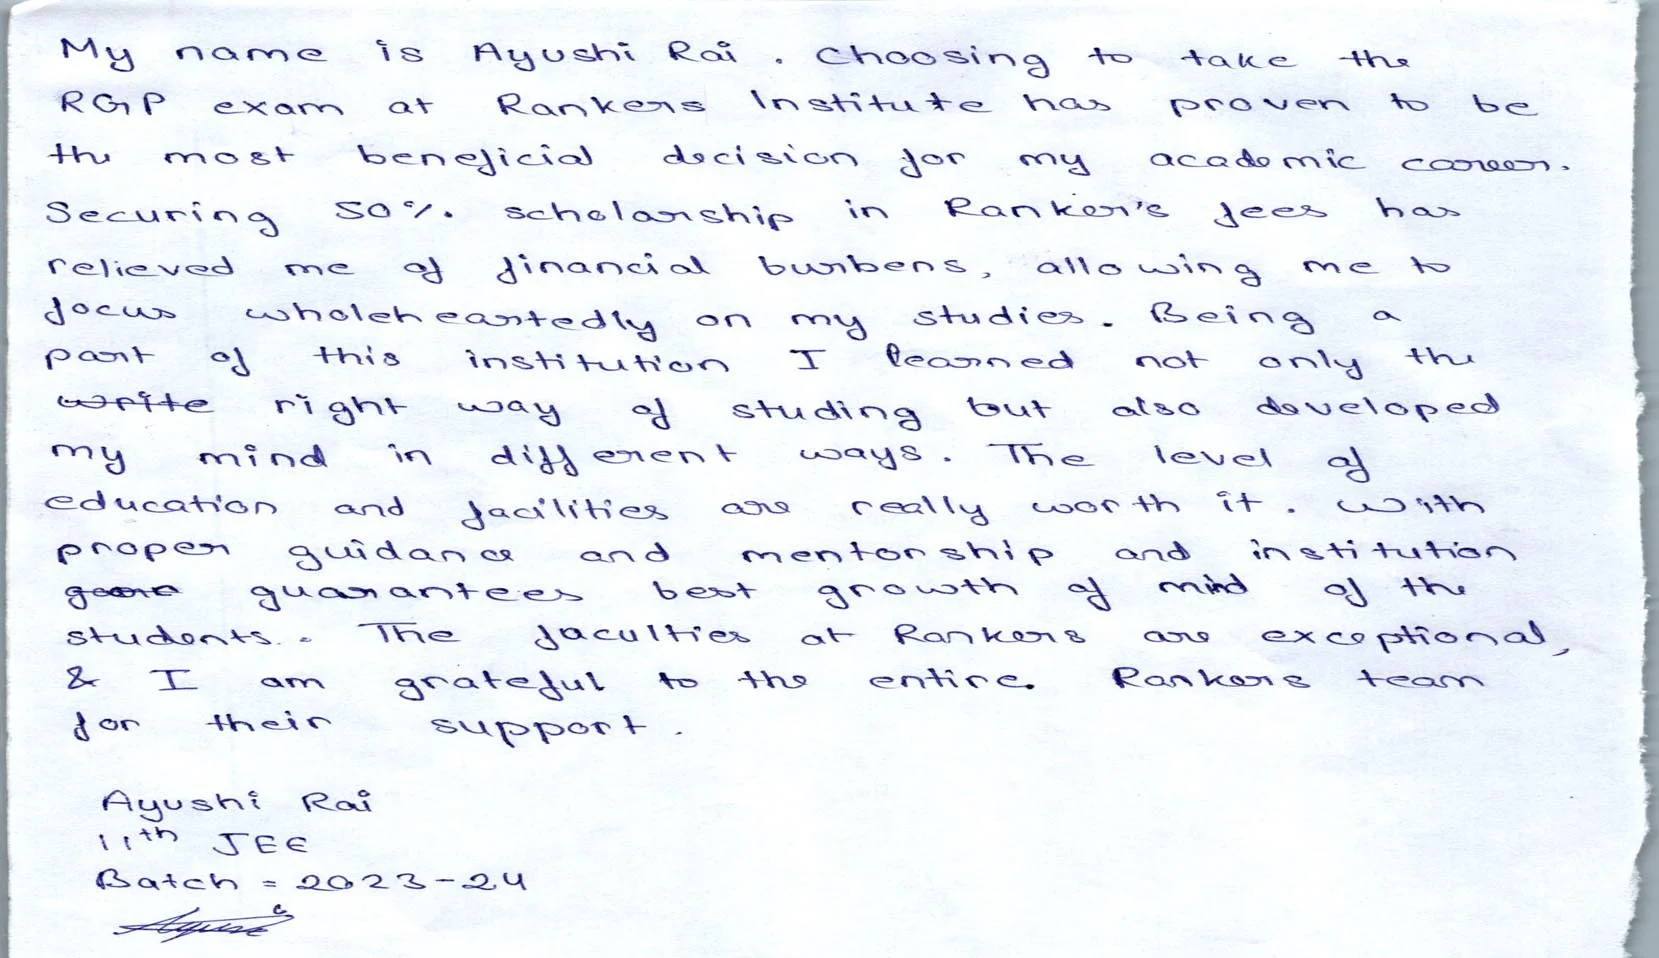 My name is Ayushi Rai. Choosing to take the
RGP exam at Rankers Institute has proven to be
the most beneficial decision for my academic career.
Securing 50%. scholarship in Ranker's fees has
relieved me of financial burbens, allowing me to
focus wholeheartedly on my studies. Being a
part of this institution I learned not only the
write right way of studing but also developed
my mind in different ways. The level of
education and facilities are really worth it. with
proper guidance and mentorship and institution
guarantees best growth of mind of the
students.. The faculties at Rankers are exceptional,
& I am grateful to the entire. Rankers team
for their support.
Ayushi Rai
11th JEE
Batch = 2023-24
Ayushi